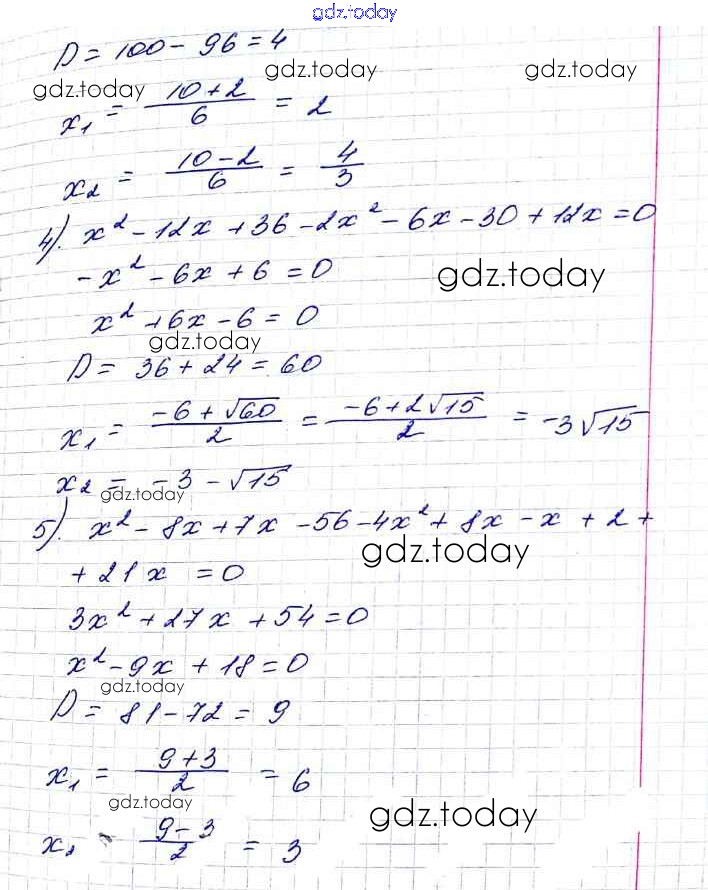 gdz.today
D = 100 - 96 = 4
gdz.today gdz.today gdz.today
x₁ = (10+2)/6 = 2
x₂ = (10-2)/6 = 4/3
4). x² - 12x + 36 - 2x² - 6x - 30 + 12x = 0
-x² - 6x + 6 = 0
gdz.today
x² + 6x - 6 = 0
gdz.today
D = 36 + 24 = 60
x₁ = (-6 + √60)/2 = (-6 + 2√15)/2 = -3√15
x₂ = -3 - √15
gdz.today
5). x² - 8x + 7x - 56 - 4x² + 8x - x + 2 +
gdz.today
+ 21x = 0
3x² + 27x + 54 = 0
x² - 9x + 18 = 0
gdz.today
D = 81 - 72 = 9
x₁ = (9+3)/2 = 6
gdz.today gdz.today
x₂ = (9-3)/2 = 3